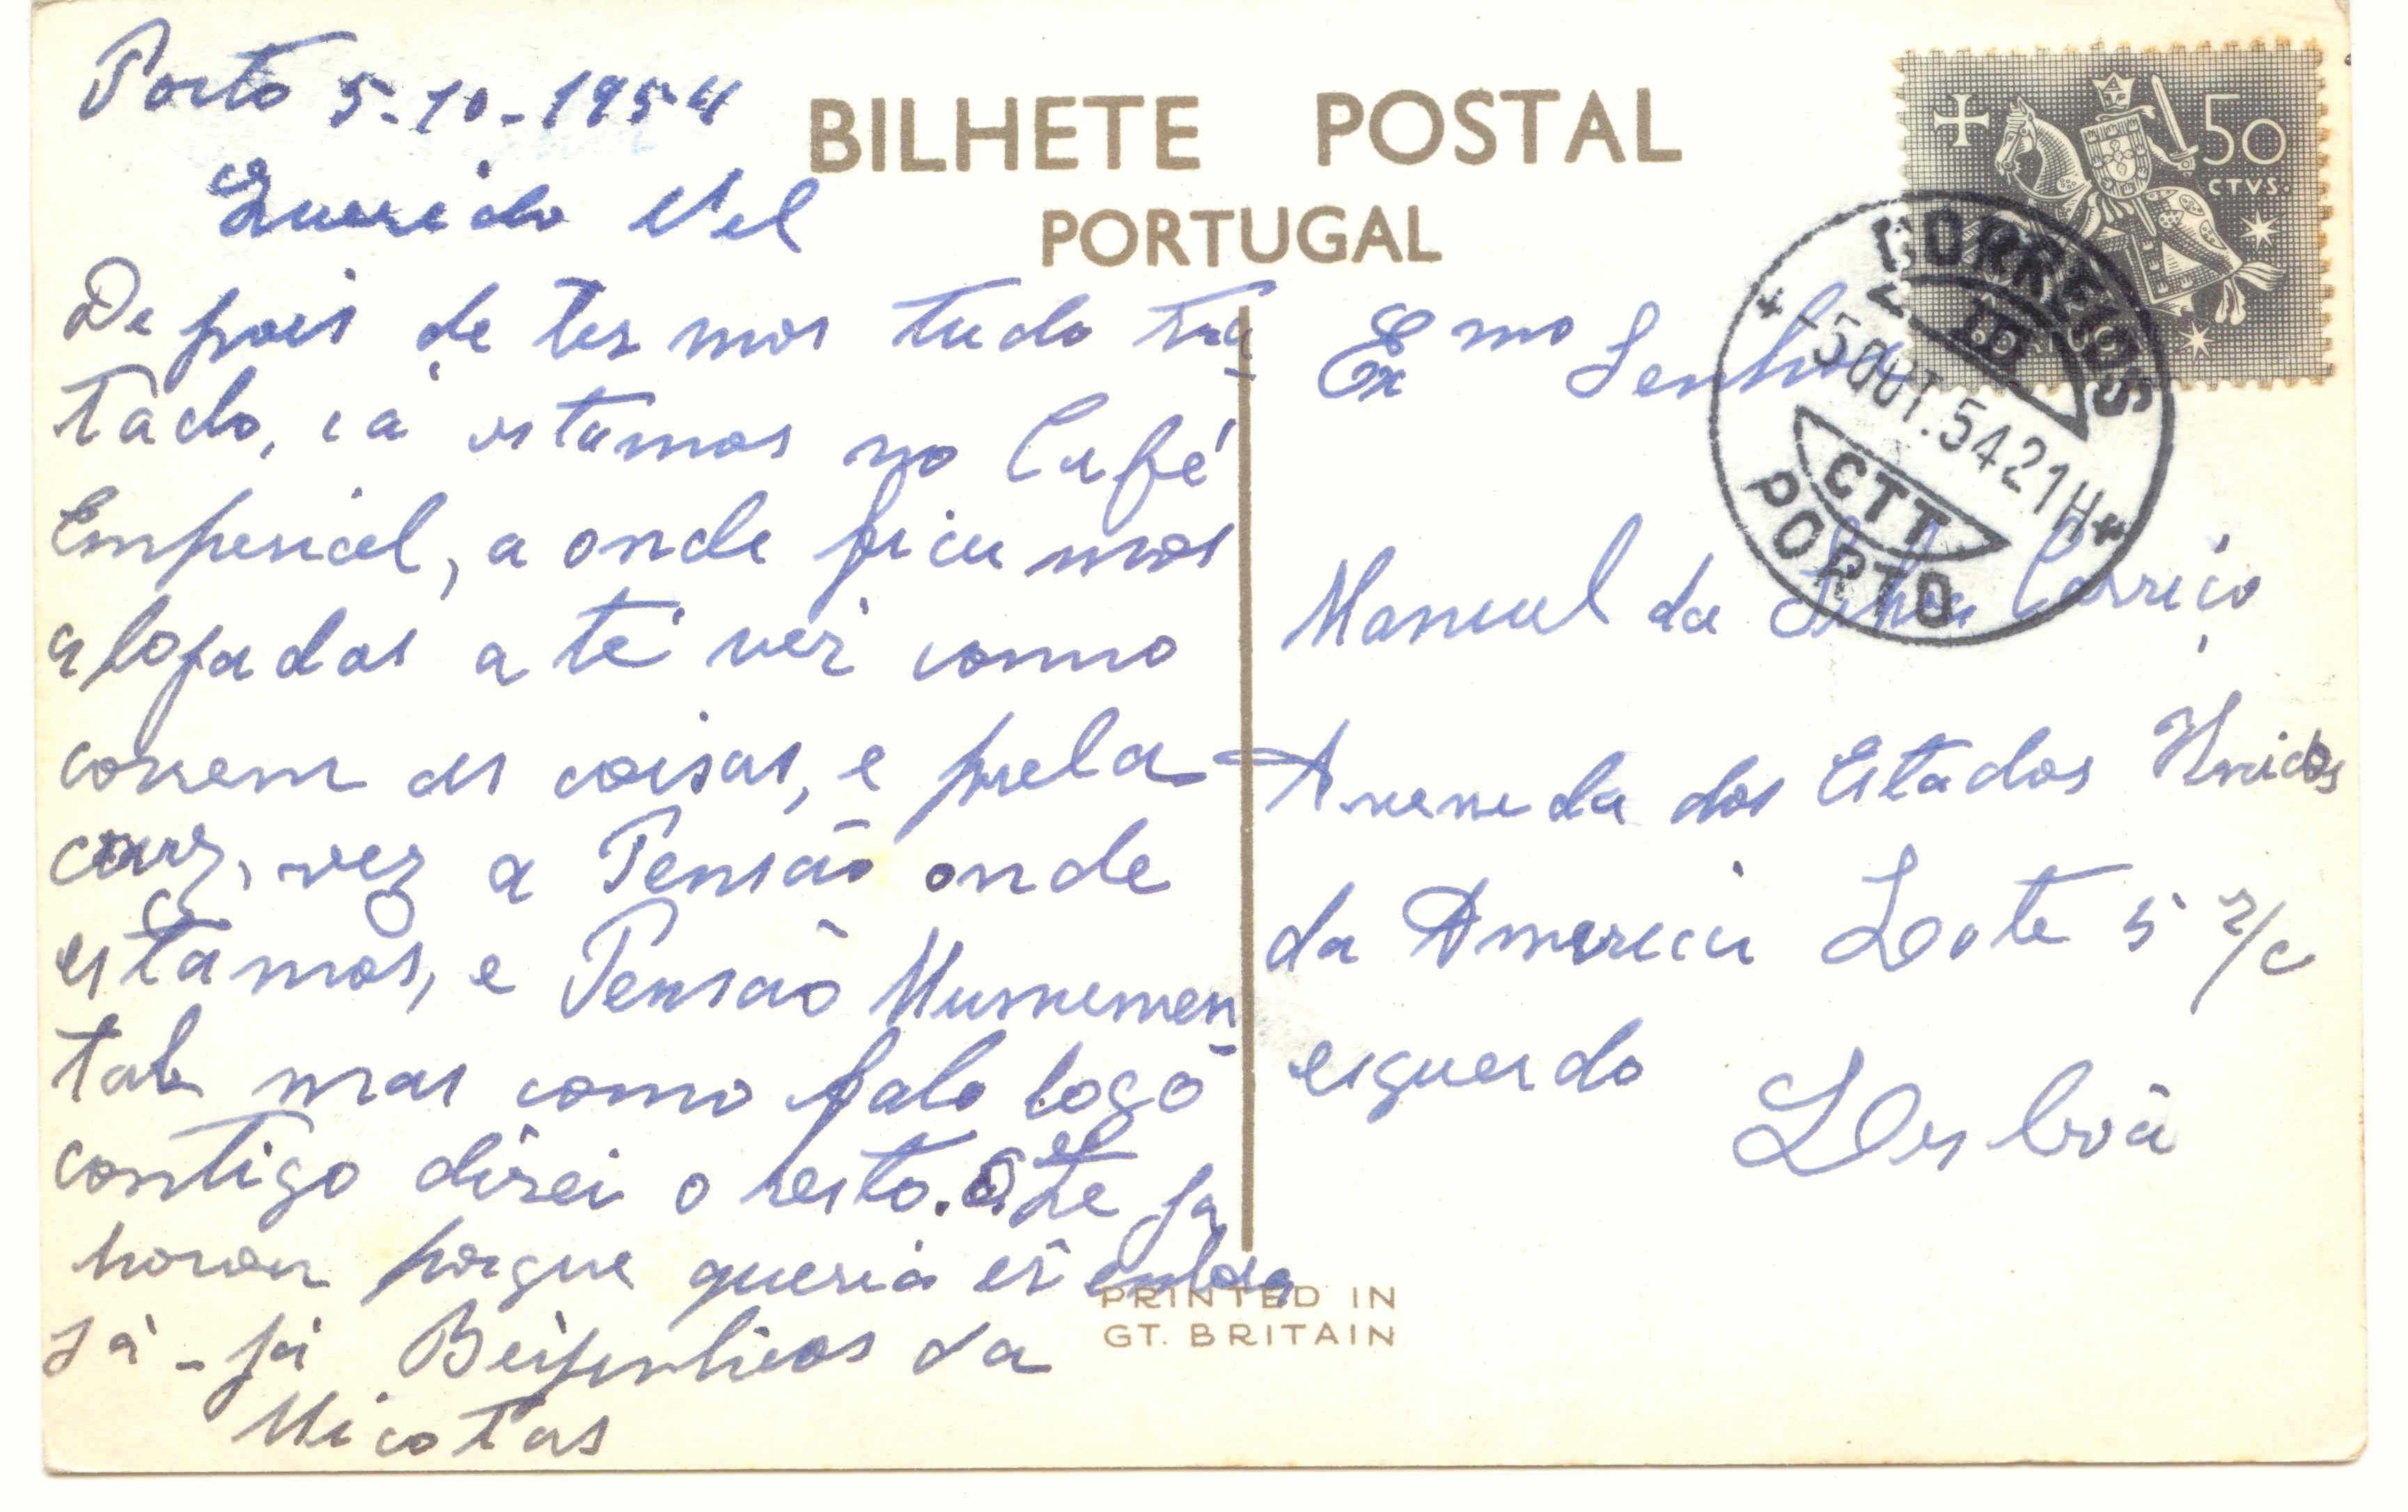 Porto 5-10-1954
Querido Nel
Depois de termos tudo tra
tado, cá estamos no Café
Emperial, a onde ficamos
alojados até ver como
correm as coisas, e pela
vez a Pensão onde
estamos, e Pensão Munumen
tal mas como falo logo
contigo direi o resto. o Zé ja
porque queria ir embora
já-já Beijinhos da
Micotas
BILHETE POSTAL
PORTUGAL
50
CTVS.
CORREIOS
III
-5 OUT. 54 21H
CTT
PORTO
Exmo Senhor
Manuel da Silva Carriço
Aveneda dos Estados Unidos
da America Lote 5 r/c
esquerdo
Lisboa
PRINTED IN
GT. BRITAIN